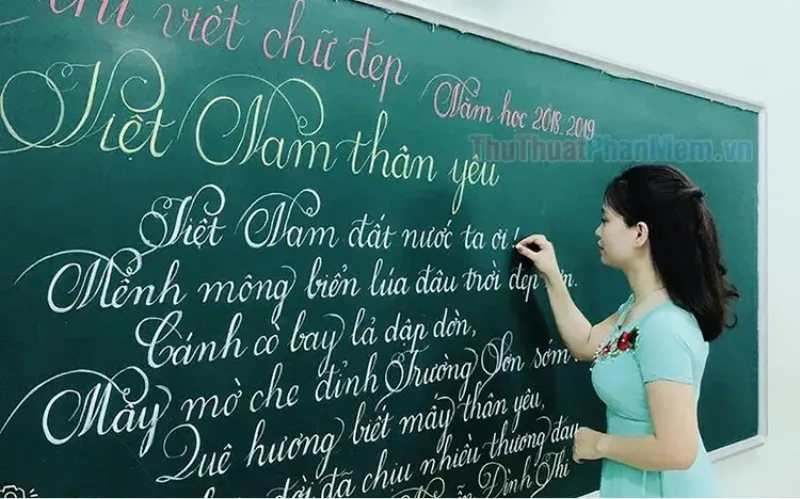 Thi viết chữ đẹp
Năm học 2018-2019
ThuThuatPhanMem.vn
Việt Nam thân yêu
Việt Nam đất nước ta ơi!
Mênh mông biển lúa đâu trời đẹp
Cánh cò bay lả dập dờn,
Mây mờ che đỉnh Trường Sơn sớm
Quê hương biết mấy thân yêu,
đời đã chịu nhiều thương đau
Đình Thi